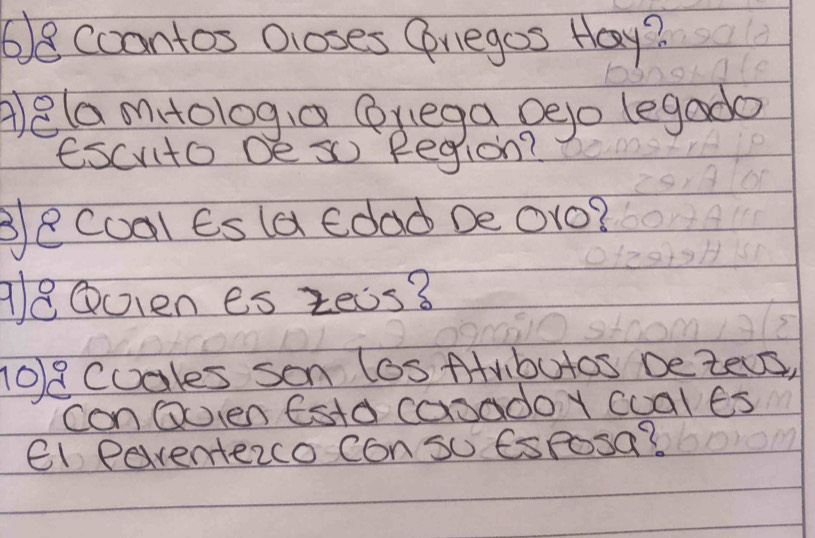 6)¿Cuantos Dioses Griegos Hay?
7)¿la mitologia Griega Dejo legado
Escrito De su Region?
8)¿Cual Es la Edad De oro?
9)¿Quien es zeus?
10)¿Cuales son los Atributos De zeus,
con Quien Esta casado y cual es
El Parentezco con su Esposa?